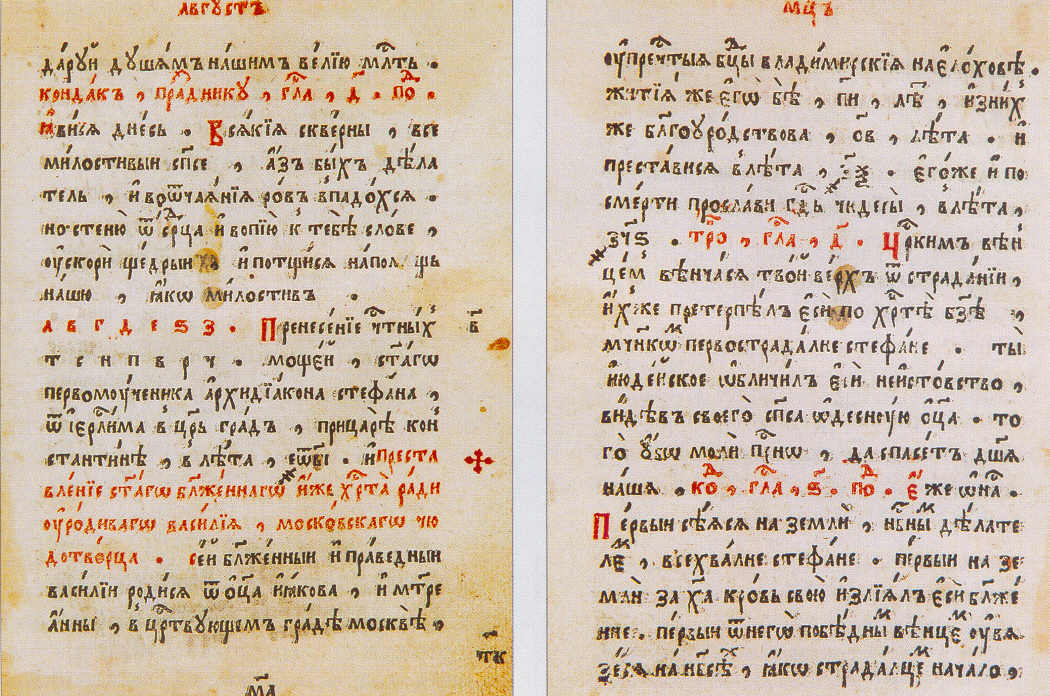 АВГУСТЪ
да́рꙋй дꙋша́мъ на́шимъ ве́лїю мл҃ть .
конда́къ , пра́здникꙋ , гла̑ , д҃ . по̑ .
ꙗ҆ви́сѧ дне́сь . Всѧ́кїѧ скве́рны , все
ми́лостивыи сп҃се , а҆́зъ бы́хъ дѣ́ла
тель , и҆ во ѿча́ѧнїѧ ро́въ впадо́хсѧ .
но стеню̀ ѿ се́рⷣца и҆ вопїю̀ к тебѣ̀ сло́ве ,
оу҆скори̑ ще́дрыи и҆ потщи́сѧ на по́
на́шю , ꙗ҆́кѡ ми́лостивъ .
а в г д е ѕ з . Пренесе́нїе чⷭ҇тны́хъ
в҃
т с н п в р ч . моще́й , ст҃а́гѡ
первомоу́ченика а҆рхидїа́кона стефа́на ,
ѿ і҆ерⷭ҇ли́ма в цр҃ь гра́дъ , при цар҃ѣ кон
стантинѣ , в лѣ́та , и҆ преста
вле́нїе ст҃а́гѡ бл҃же́ннагѡ и҆́же хрⷭ҇та̀ ра́ди
оу҆ро́дивагѡ васи́лїѧ , моско́вскагѡ чю
дотво́рца . се́й бл҃же́нныи и҆ пра́ведныи
васи́лїи роди́сѧ ѿ о҆ц҃а̀ и҆ꙗ́кова , и҆ мт҃ре
а҆́нны , в црⷭ҇твꙋющемъ гра́дѣ москвѣ̀ ,
ма҃
МЦ҃Ъ
оу҆ пречⷭ҇тыѧ бц҃ы влади́мирскїѧ на е҆ло́ховѣ .
житїѧ̀ же е҆гѡ̀ бѣ̀ , пи , лѣ̑ , и҆з ни́хъ
же бл҃гоуро́дствова , ов , лѣ́та . и҆
преста́висѧ в лѣ́та , . е҆го́же и҆ по
сме́рти просла́ви гдⷭ҇ь чюдесы̀ , в лѣ́та ,
зч҃ѕ . тро̑ , гла̑ , д҃ . Црⷭ҇кимъ вѣн
це́мъ вѣнча́сѧ твой ве́рхъ ѿ страда́нїи ,
и҆́хже претерпѣ́лъ е҆сѝ по хрⷭ҇тѣ̀ бз҃ѣ ,
мч҃нкѡⷨ первострада́лне стефа́не . ты̀
и҆юде́йское ѡ҆бличи́лъ е҆сѝ неи́стовство ,
ви́дѣвъ своего̀ сп҃са ѡ҆деснꙋ́ю о҆ц҃а . то
го̀ оу҆́бѡ моли̑ при́снѡ , да спасе́тъ дш҃а
на́шѧ . ко̑ , гла̑ , ѕ҃ . по̑ . Е҆́же ѡ҆ на̑ .
Пе́рвыи сѣ́ѧсѧ на землѝ , нб҃ны́мъ дѣ́лате
леⷨ , всехва́лне стефа́не . пе́рвыи на зе
млѝ за ха̑ кро́вь свою̀ и҆злїѧ́лъ е҆сѝ бл҃же́
нне . пе́рвыи ѿ него̀ побѣ́дныⷨ вѣнце́ⷨ оу҆вѧ
зе́сѧ на нб҃сѣ́хъ , ꙗ҆́кѡ страда́лцеⷨ нача́ло ,